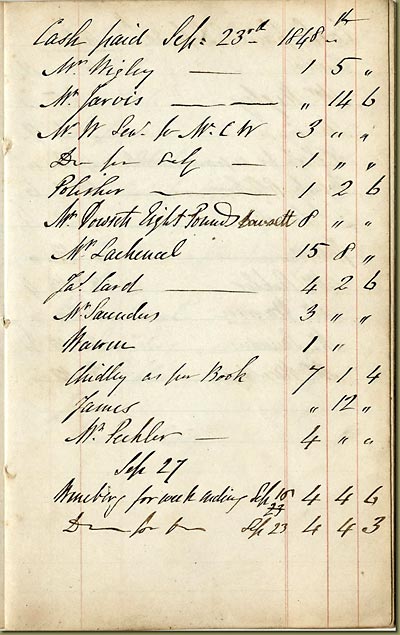 Cash paid Sep: 23rd 1848
Mr Wigley — 1 5 "
Mr Jarvis — — — " 14 6
Mr W Senr for Mr C W 3 " "
Do for Self — 1 " "
Polisher — 1 2 6
Mr Dowsett Eight Pounds Dowsett 8 " "
Mr Lachenal 15 8 "
Jas Card — 4 2 6
Mr Saunders 3 " "
Warren 1 "
Chidley as per Book 7 1 4
James " 12 "
Mr Pechler — 4 " "
Sep 27
for week ending Sep 16 4 4 6
23
Do for Do Sep 23 4 4 3